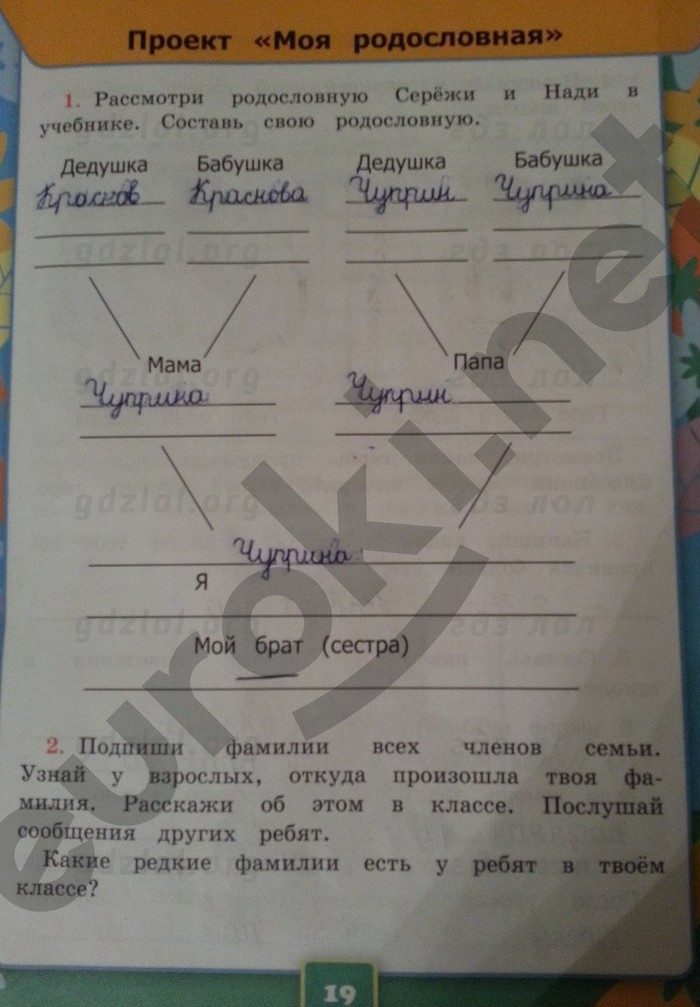 Проект «Моя родословная»
1. Рассмотри родословную Серёжи и Нади в
учебнике. Составь свою родословную.
Дедушка Бабушка Дедушка Бабушка
Краснов Краснова Чуприн Чуприна
gdzlol.org
Мама Папа
Чуприна Чуприн
gdzlol.org
gdzlol.org
Чуприна
Я
gdzlol.org
Мой брат (сестра)
2. Подпиши фамилии всех членов семьи.
Узнай у взрослых, откуда произошла твоя фа-
милия. Расскажи об этом в классе. Послушай
сообщения других ребят.
Какие редкие фамилии есть у ребят в твоём
классе?
19
euroki.net